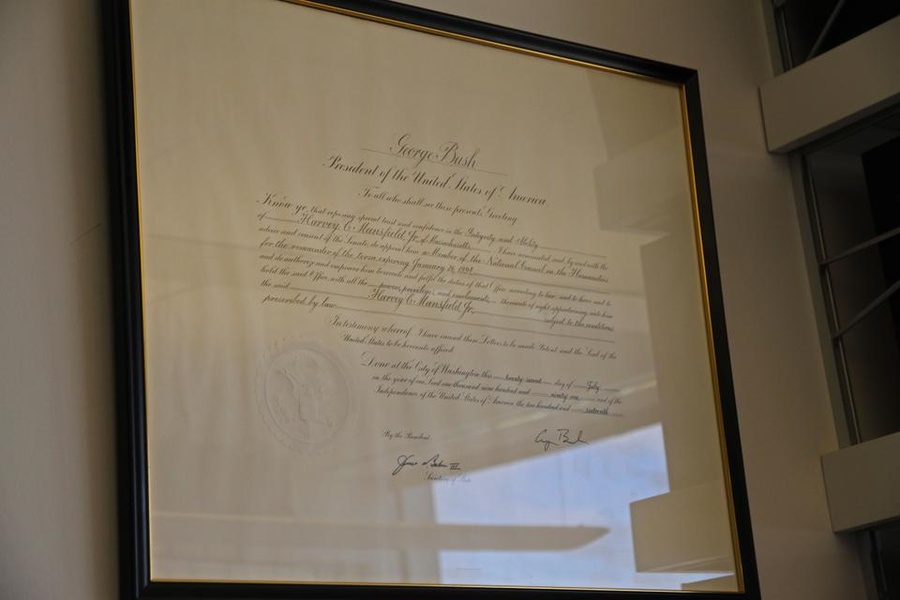 George Bush
President of the United States of America.
To all who shall see these presents, Greeting:
Know ye, that reposing special trust and confidence in the Integrity and Ability
of Harvey C. Mansfield, Jr., of Massachusetts, I have nominated, and, by and with the
advice and consent of the Senate, do appoint him a Member of the National Council on the Humanities
for the remainder of the term expiring January 26, 1994
and do authorize and empower him to execute and fulfil the duties of that Office according to law, and to have and to
hold the said Office, with all the powers, privileges, and emoluments thereunto of right appertaining, unto him
the said Harvey C. Mansfield, Jr., subject to the conditions
prescribed by law.
In testimony whereof, I have caused these Letters to be made Patent and the Seal of the
United States to be hereunto affixed.
Done at the City of Washington this twenty second day of July
in the year of our Lord one thousand nine hundred and ninety one and of the
Independence of the United States of America the two hundred and sixteenth
By the President:
Secretary of State